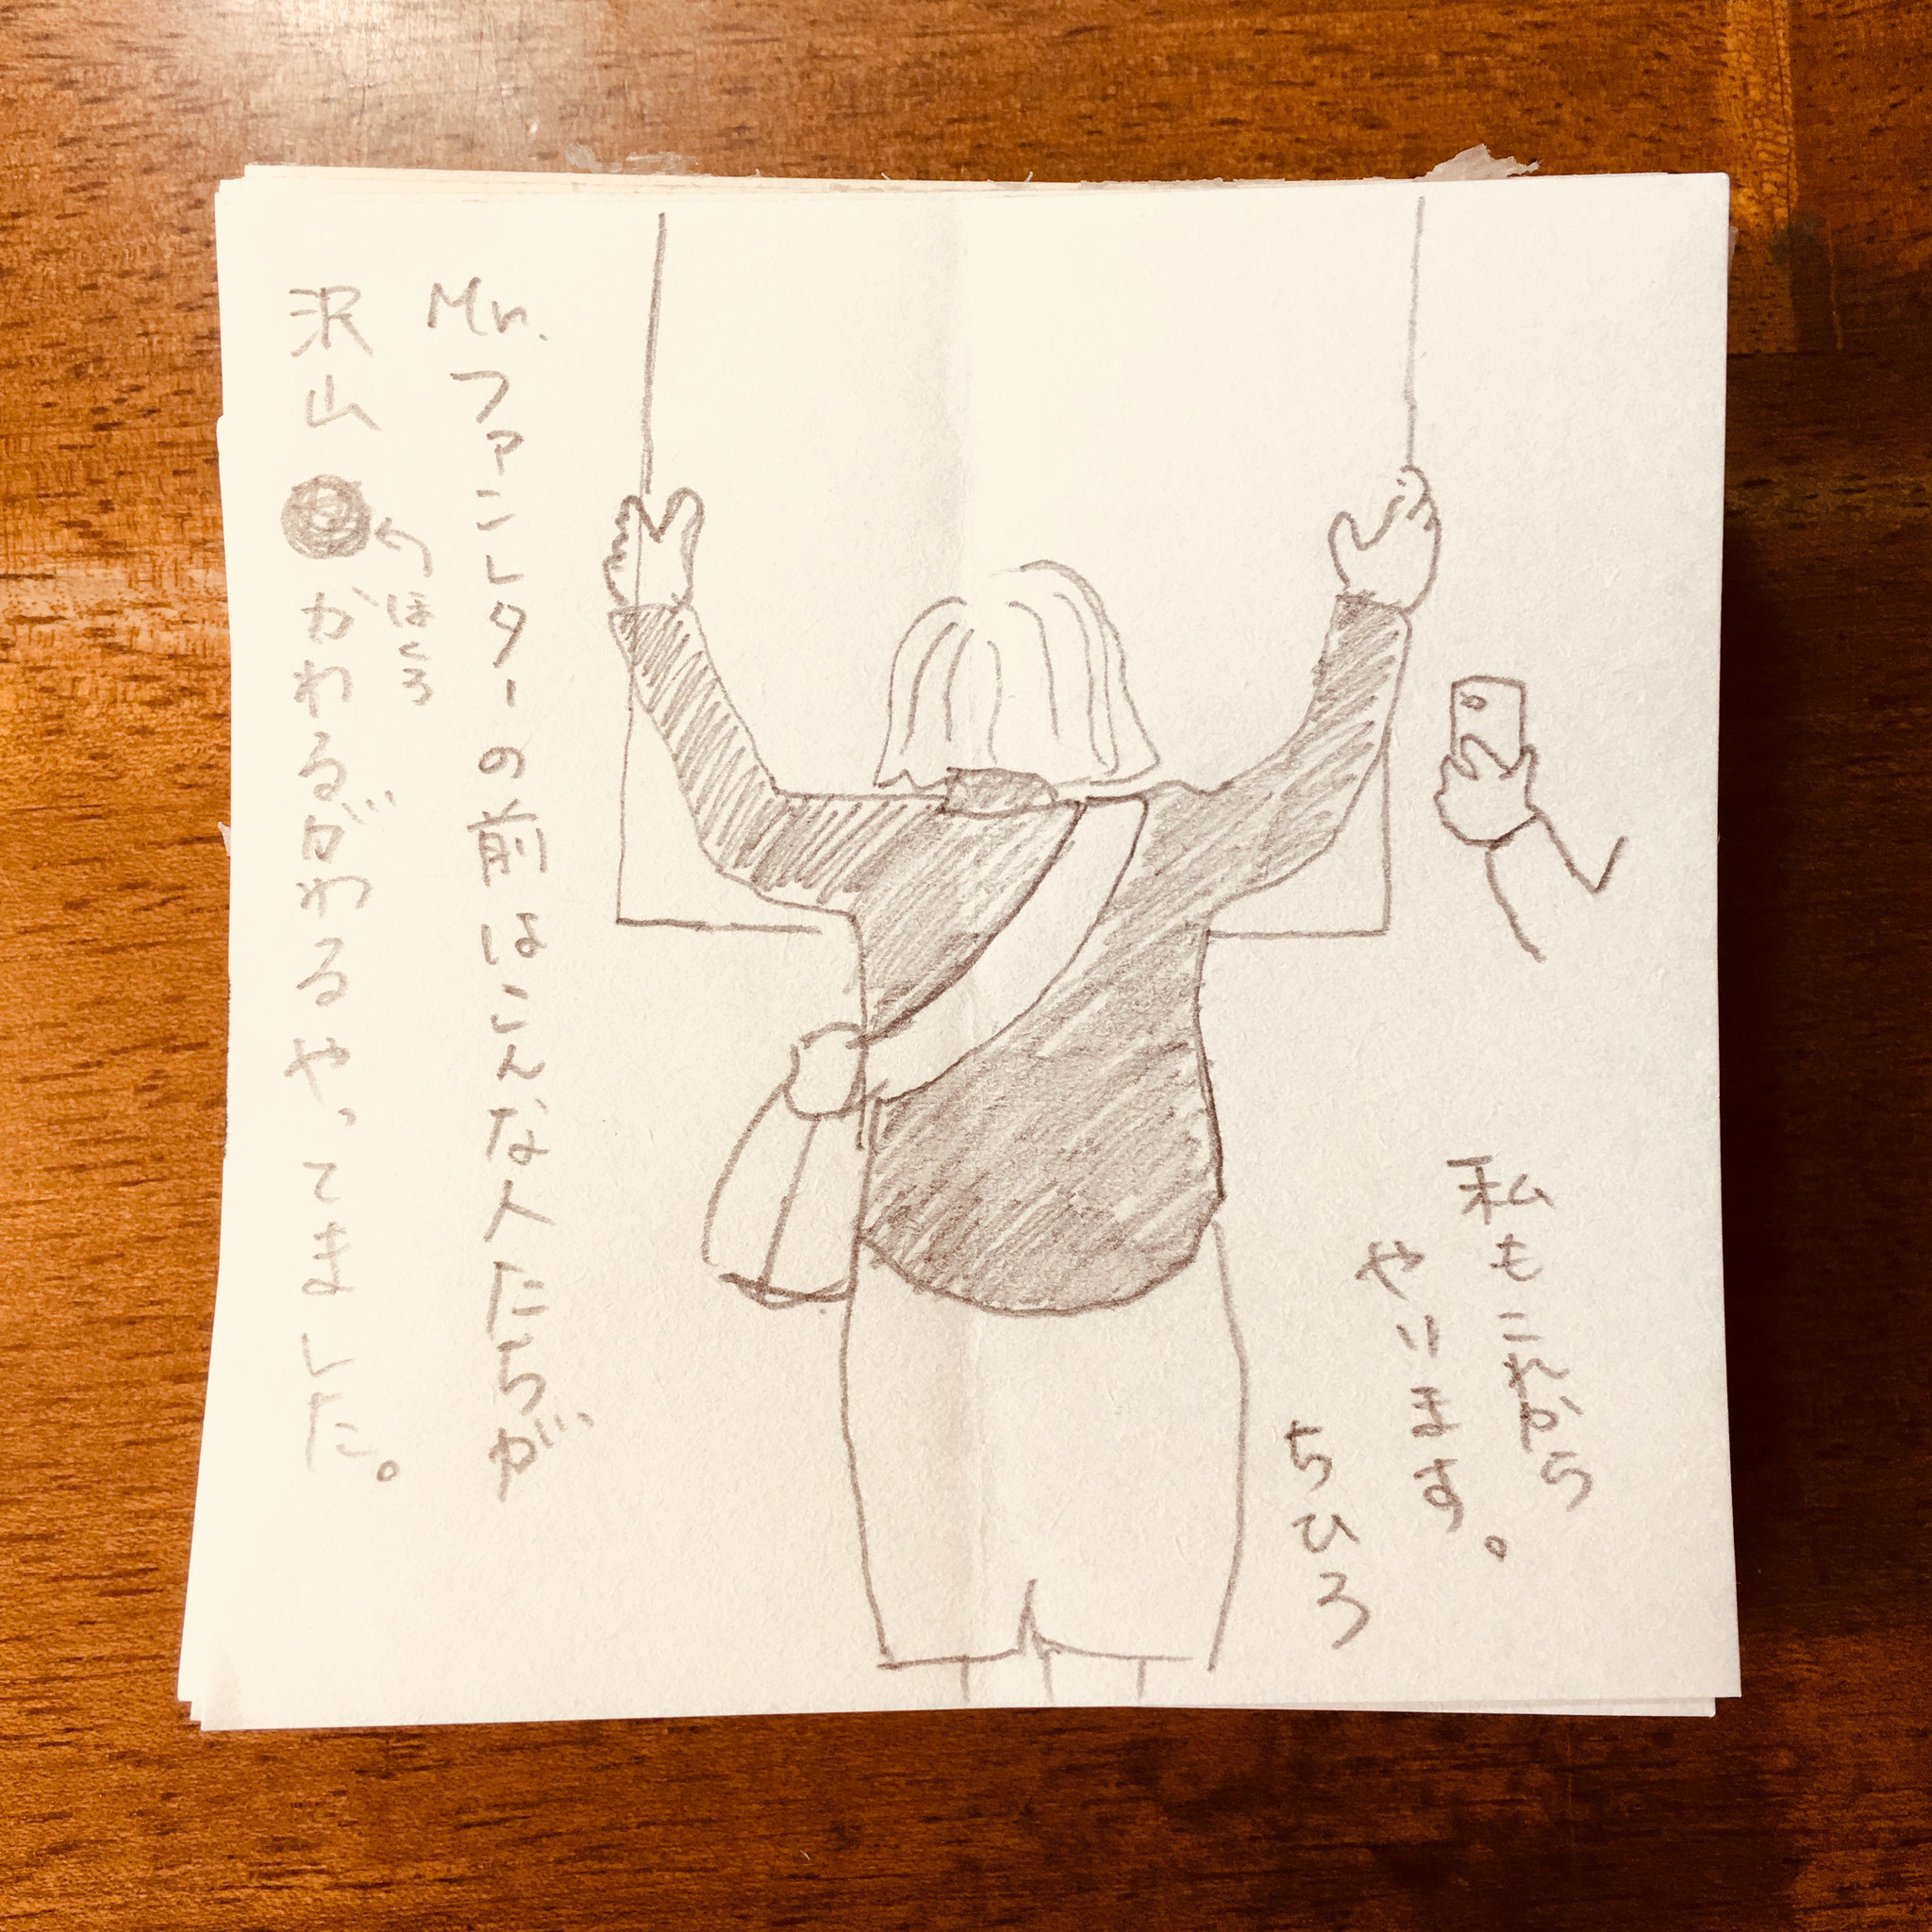 Mr.ファンレターの前はこんな人たちが
沢山かわるがわるやってました。
ほくろ
私もこれから
やります。
ちひろ